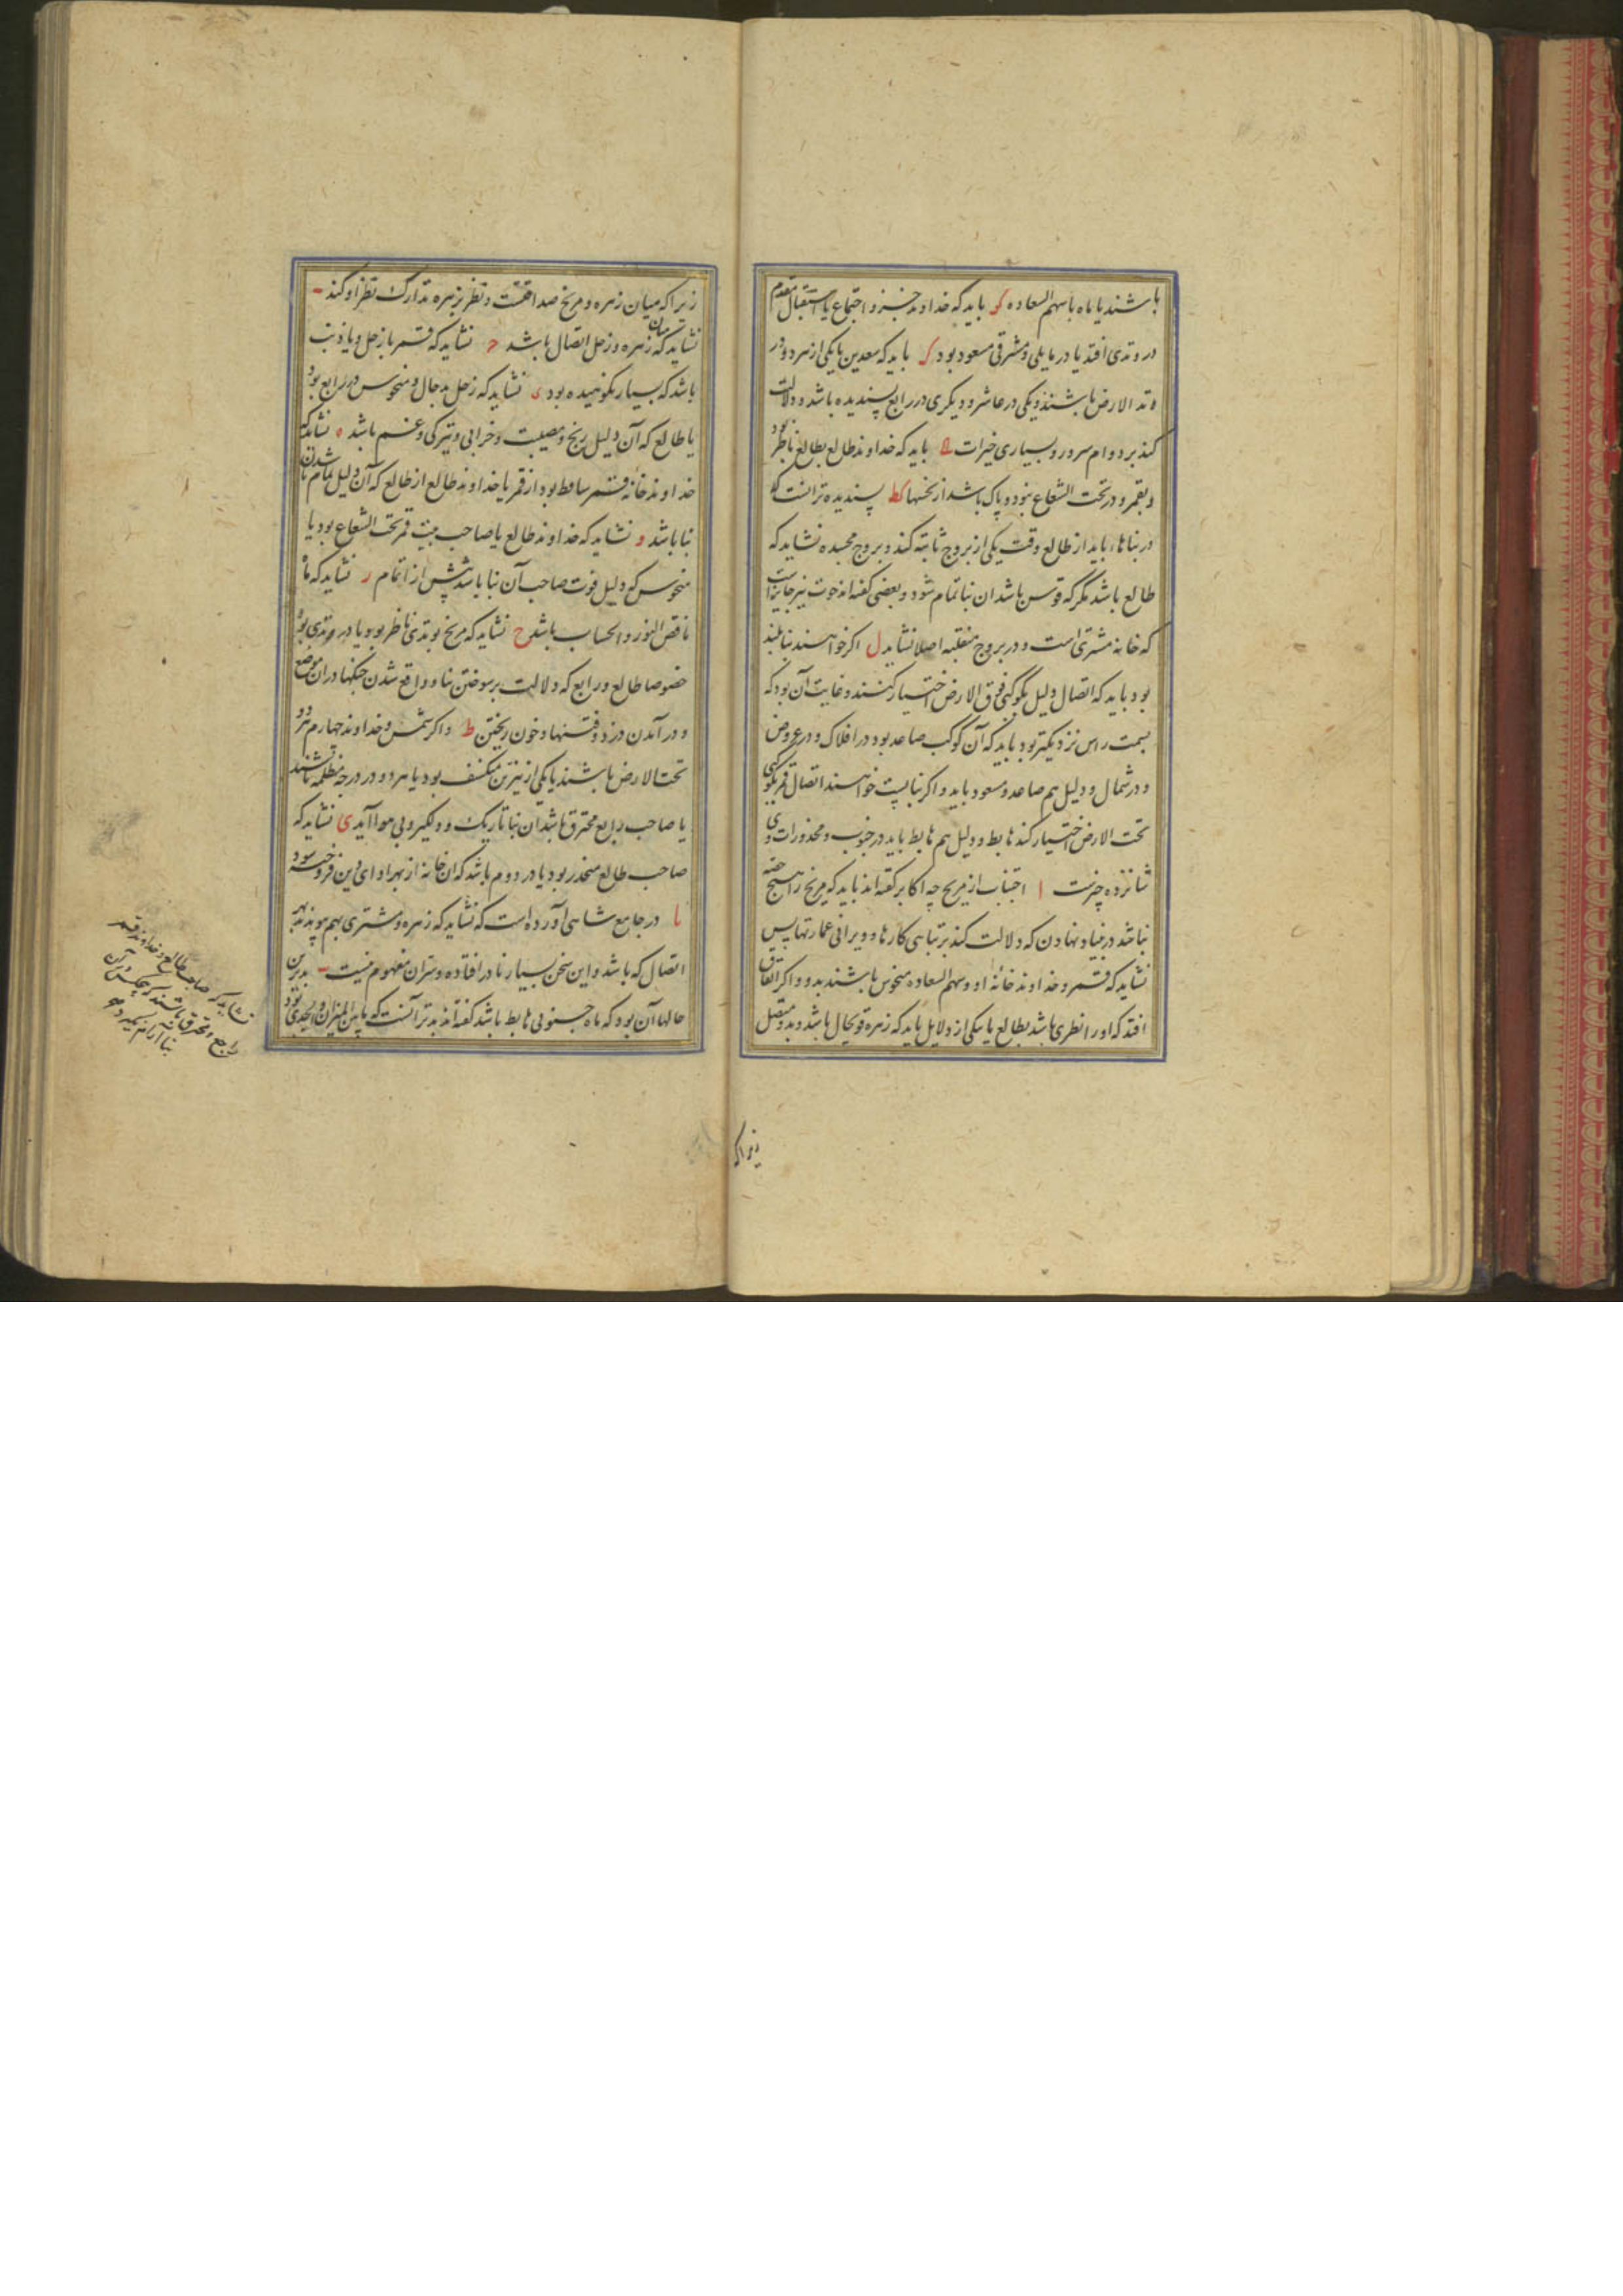 باشند یا ماه با سهم السعاده کو باید که خداوند جزو اجتماع یا استقبال مقدم
در وتدی افتد یا در مایلی و مشرقی مسعود بود کز باید که سعدین یا یکی ازهر دو در
وتد الارض باشند و یکی در عاشر و دیگری در رابع پسندیده باشد و دلالت
کند بر دوام سرور و بسیاری خیرات کح باید که خداوند طالع بطالع ناظر بود
و بقمر و در تحت الشعاع نبود و پاک باشد از نحسها کط پسندیده تر انست که
در بناها باید از طالع وقت یکی از بروج ثابته کند و بروج مجسده نشاید که
طالع باشد مگر که قوس باشد ان بنا تمام شود و بعضی گفته اند حوت نیز جایز است
که خانه مشتری است و در بروج منقلبه اصلا نشاید ل اگر خواهند بنا بلند
بود باید که اتصال دلیل بکوکبی فوق الارض اختیار کنند و غایت آن بود که
بسمت راس نزدیکتر بود باید که آن کوکب صاعد بود در افلاک و در عروض
و در شمال و دلیل هم صاعد و مسعود باید و اگر بنا پست خواهند اتصال قمر بکوکبی
تحت الارض اختیار کند هابط و دلیل هم هابط باید در جنوب و محذورات وی
شانزده چیزست ا اجتناب از مریخ چه اکابر گفته اند باید که مریخ را هیچ حصه
نباشد در بنیاد نهادن که دلالت کند بر تباهی کارها و ویرانی عمارتها پس
نشاید که قمر و خداوند خانهٔ او و سهم السعاده منحوس باشند بدو و اگر اتفاق
افتد که او را نظری باشد بطالع یا بیکی از دلایل باید که زهره قوی حال باشد و بدو متصل
زیراکه
زیرا که میان زهره و مریخ صداقتست و نظر زهره تدارک نظر او کند ب
نشاید که میان زهره و زحل اتصال باشد ج نشاید که قمر با زحل و یا ذنب
باشد که بسیار نکوهیده بود د نشاید که زحل بد حال و منحوس در رابع بود
یا طالع که آن دلیل رنج و مصیبت و خرابی و تیرکی و غم باشد ه نشاید که
خداوند خانه قمر ساقط بود از قمر یا خداوند طالع از طالع که آن دلیل تمام نا شدن
بنا باشد و نشاید که خداوند طالع یا صاحب بیت قمر تحت الشعاع بود یا
منحوس که دلیل فوت صاحب آن بنا باشد پیش از اتمام ز نشاید که ماه
ناقص النور و الحساب باشد ح نشاید که مریخ بوتدی ناظر بود یا در وتدی بود
خصوصا طالع و رابع که دلالت بر سوختن بنا و واقع شدن جنگها در ان موضع
و در آمدن دزد و فتنها و خون ریختن ط و اکر شمس و خداوند چهارم هر دو
تحت الارض باشند یا یکی از نیرین منکسف بود یا هر دو در درجهٔ مظلمه باشند
یا صاحب رابع محترق باشد آن بنا تاریک و دلگیر و بی هوا آید ی نشاید که
صاحب طالع منحدر بود یا در دوم باشد که ان خانه از بهر ادای دین فروخته شود
یا در جامع شاهی آورده است که نشاید که زهره و مشتری بهم پیوندند بهر
اتصال که باشد و این سخن بسیار نادر افتاده و سر آن مفهوم نیست یب بدترین
حالها آن بود که ماه جنوبی هابط باشد گفته اند بدتر آنست که ما بین المیزان و الجدی بود
نشاید که صاحب طالع و خداوند قمر
راجع و محترق باشند که هیچکس در آن